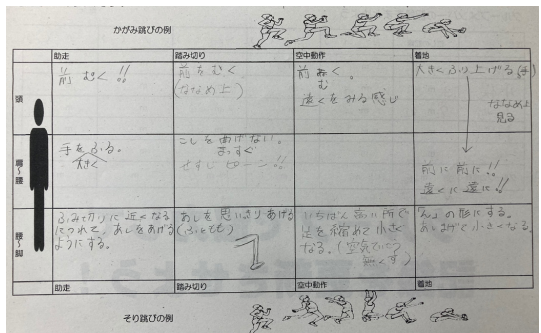 かがみ跳びの例
助走
踏み切り
空中動作
着地
頭
前 むく !!
前をむく
(ななめ上)
前 むく。
遠くをみる感じ
大きくふり上げる(手)
ななめ上
見る
肩~腰
手をふる。
大きく
こしをまげない。
まっすぐ
せすじ ピーン!!
前に前に!!
遠くに遠に!!
腰~脚
ふみ切りに近くなる
につれて、あしをあげる
ようにする。
あしを思いきりあげる
(ふともも)
いちばん高い所で
足を縮めて小さく
なる。(空気ていこう
無くす)
「ん」の形にする。
あしまげて小さくなる。
助走
踏み切り
空中動作
着地
そり跳びの例